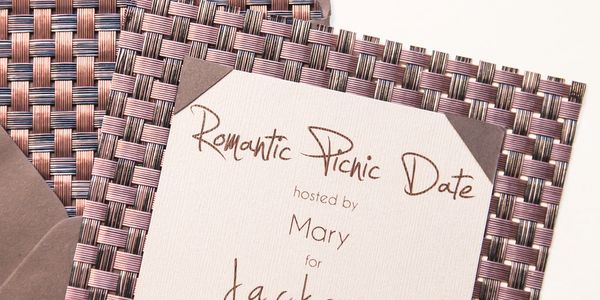 Romantic Picnic Date
hosted by
Mary
for